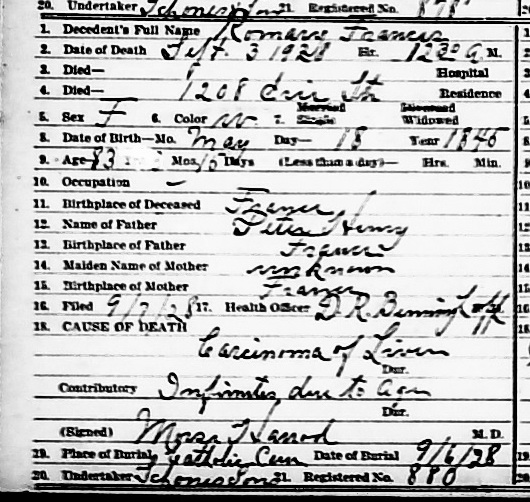 20. Undertaker Schone & Son 21. Registered No. 878
1. Decedent's Full Name Romary Frances
2. Date of Death Sept. 3 1928 Hr. 12 30 A. M.
3. Died— Hospital
4. Died— 1208 Erie St. Residence
5. Sex F 6. Color w. 7. Married Single Divorced Widowed
8. Date of Birth—Mo. May Day— 18 Year 1845
9. Age 83 Mos. Days 15 (Less than a day)— Hrs. Min.
10. Occupation –
11. Birthplace of Deceased France
12. Name of Father Peter Henry
13. Birthplace of Father France
14. Maiden Name of Mother unknown
15. Birthplace of Mother France
16. Filed 9/7/28 17. Health Officer D. R. Benninghoff
18. CAUSE OF DEATH
Carcinoma of Liver
Dur.
Contributory Infirmities due to Age
Dur.
(Signed) Morse Harrod M. D.
19. Place of Burial Catholic Cem Date of Burial 9/6/28
20. Undertaker Schone & Son 21. Registered No. 880